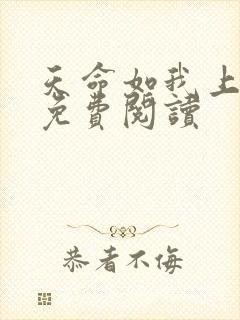 天命如我上
免費閱讀
恭者不侮